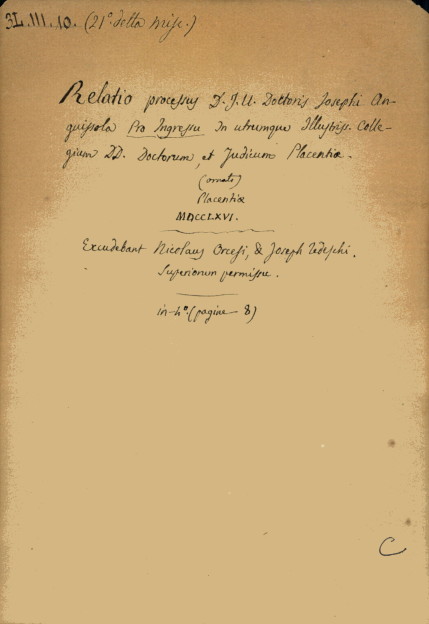 3L.III.10. (21ª della misc.)
Relatio processus D. J. U. Doctoris Josephi An-
guissola Pro Ingressu In utrumque Illustriss. Colle-
gium DD. Doctorum, et Judicum Placentiæ.
(ornato)
Placentiæ
MDCCLXVI.
Excudebant Nicolaus Orcesi, & Joseph Tedeschi.
Superiorum permissu.
in-4º. (pagine 8)
C